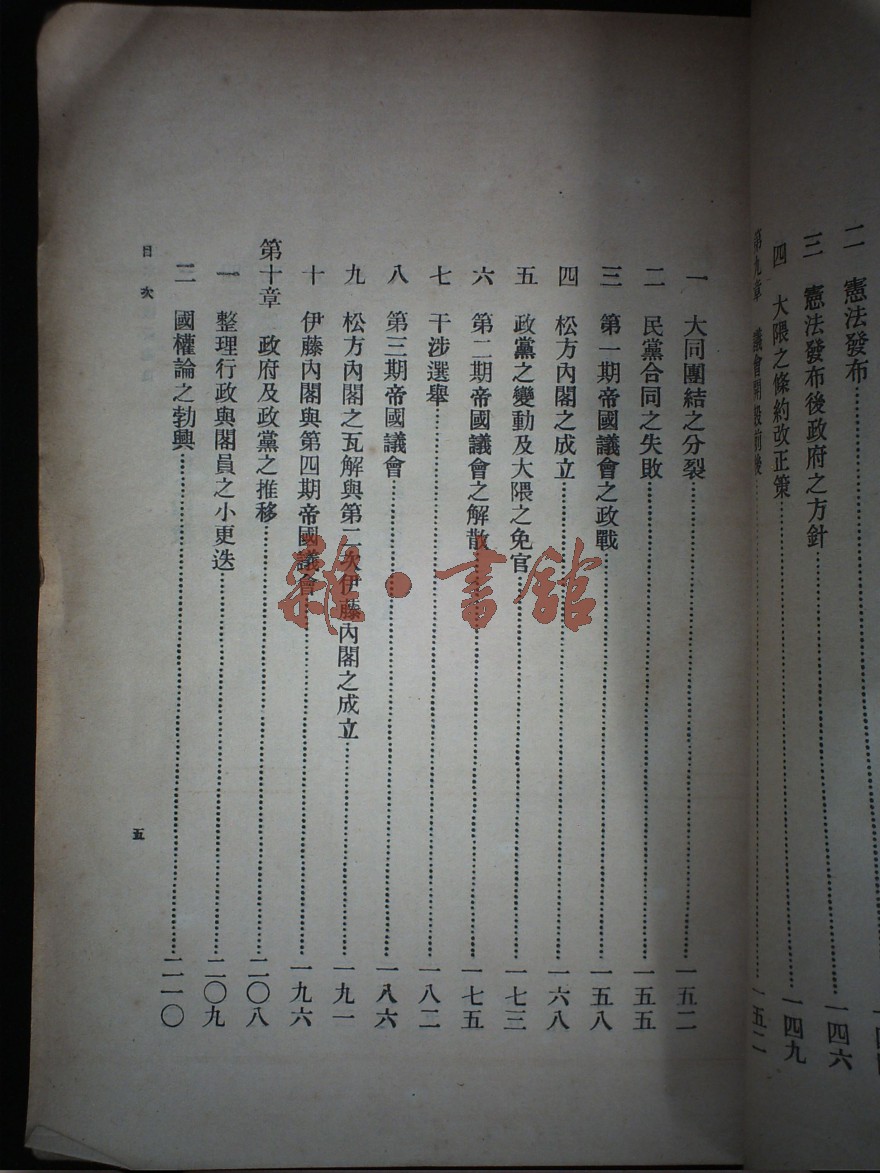 二　憲法發布……一四六
三　憲法發布後政府之方針……一四九
四　大隈之條約改正策
第九章　議會開設前後……一五二
一　大同團結之分裂……一五二
二　民黨合同之失敗……一五五
三　第一期帝國議會之政戰……一五八
四　松方內閣之成立……一六八
五　政黨之變動及大隈之免官……一七三
六　第二期帝國議會之解散……一七五
七　干涉選舉……一八二
八　第三期帝國議會……一八六
九　松方內閣之瓦解與第二次伊藤內閣之成立……一九一
十　伊藤內閣與第四期帝國議會……一九六
第十章　政府及政黨之推移……二〇八
一　整理行政與閣員之小更迭……二〇九
二　國權論之勃興……二一〇
目次
五
雜·書館